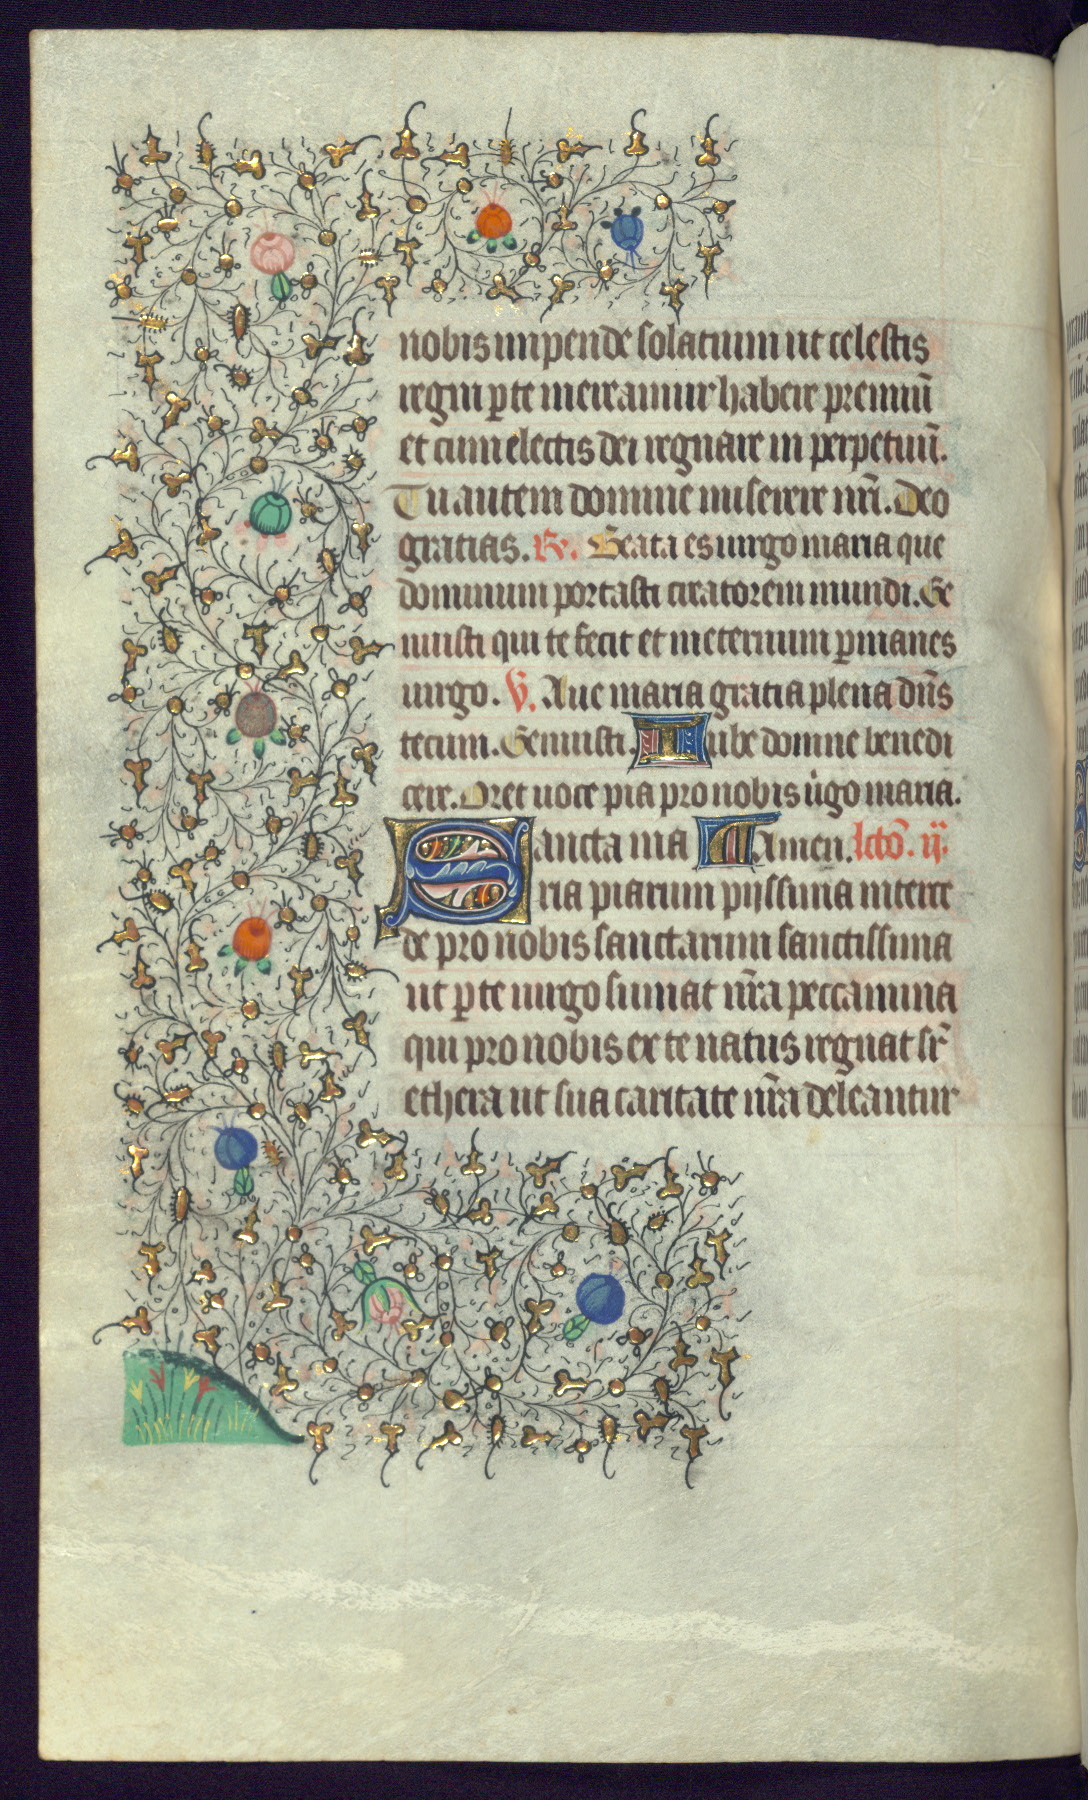 nobis impende solatium ut celestis
regni p te mereamur habere premiũ
et cum electis dei regnare in perpetuũ.
Tu autem domine miserere nr̃i. Deo
gratias. R. Beata es uirgo maria que
dominum portasti creatorem mundi. Ge
nuisti qui te fecit et ineternum pmanes
uirgo. V. Aue maria gratia plena dñs
tecum. Genuisti. Iube domne benedi
cere. Oret uoce pia pro nobis uͥgo maria.
Sancta ma Amen. lcõ. ij.
ria piarum pijssima interce
de pro nobis sanctarum sanctissima
ut p te uirgo sumat nr̃a peccamina
qui pro nobis ex te natus regnat sr̃
ethera ut sua caritate nr̃a deleantur